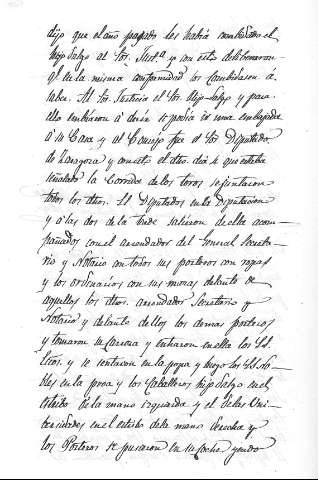 dijo que el año pasado los había combidado el
hijo Dalgo al Sor. Justª. y con esto deliberaron
ql. en la misma conformidad los combidasen á
saber. Al Sor. Justicia el Sor. Hijo-Dalgo y para
ello embiaron á decir se podia ir una embajada
á su Casa y al Consejo fue el Sor Diputado
de Zaragoza y con esto el dho. dia se que estaba
señalado la Corrida de los toros se juntaron
todos los dhos. SS Diputados en la Diputacion
y á las dos de la tarde salieron de ella acom-
pañados con el arrendador del General Secreta-
rio y Notario con todos sus porteros con ropas
y los ordinarios con sus mazas delante de
aquellos los dhos. arrendador Secretario y
Notario y delante dellos los demas porteros
y tomaron su Carrera y entraron en ella los Ecl-
ticos. y se sentaron en la popa y luego los SS. No-
bles en la proa y los Caballeros hijo Dalgo en el
estribo de la mano izquierda y el de las Uni-
bersidades en el estribo de la mano derecha y
los Porteros se pusieron en su Coche yendo